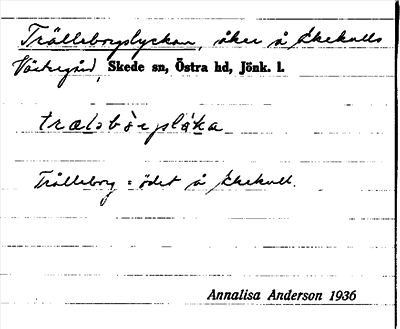 Trälleborgslyckan, åker å Ekekulls
Västergård, Skede sn, Östra hd, Jönk. l.
trælsbòrjslỳka
Trälleborg = ödet å Ekekull.
Annalisa Anderson 1936